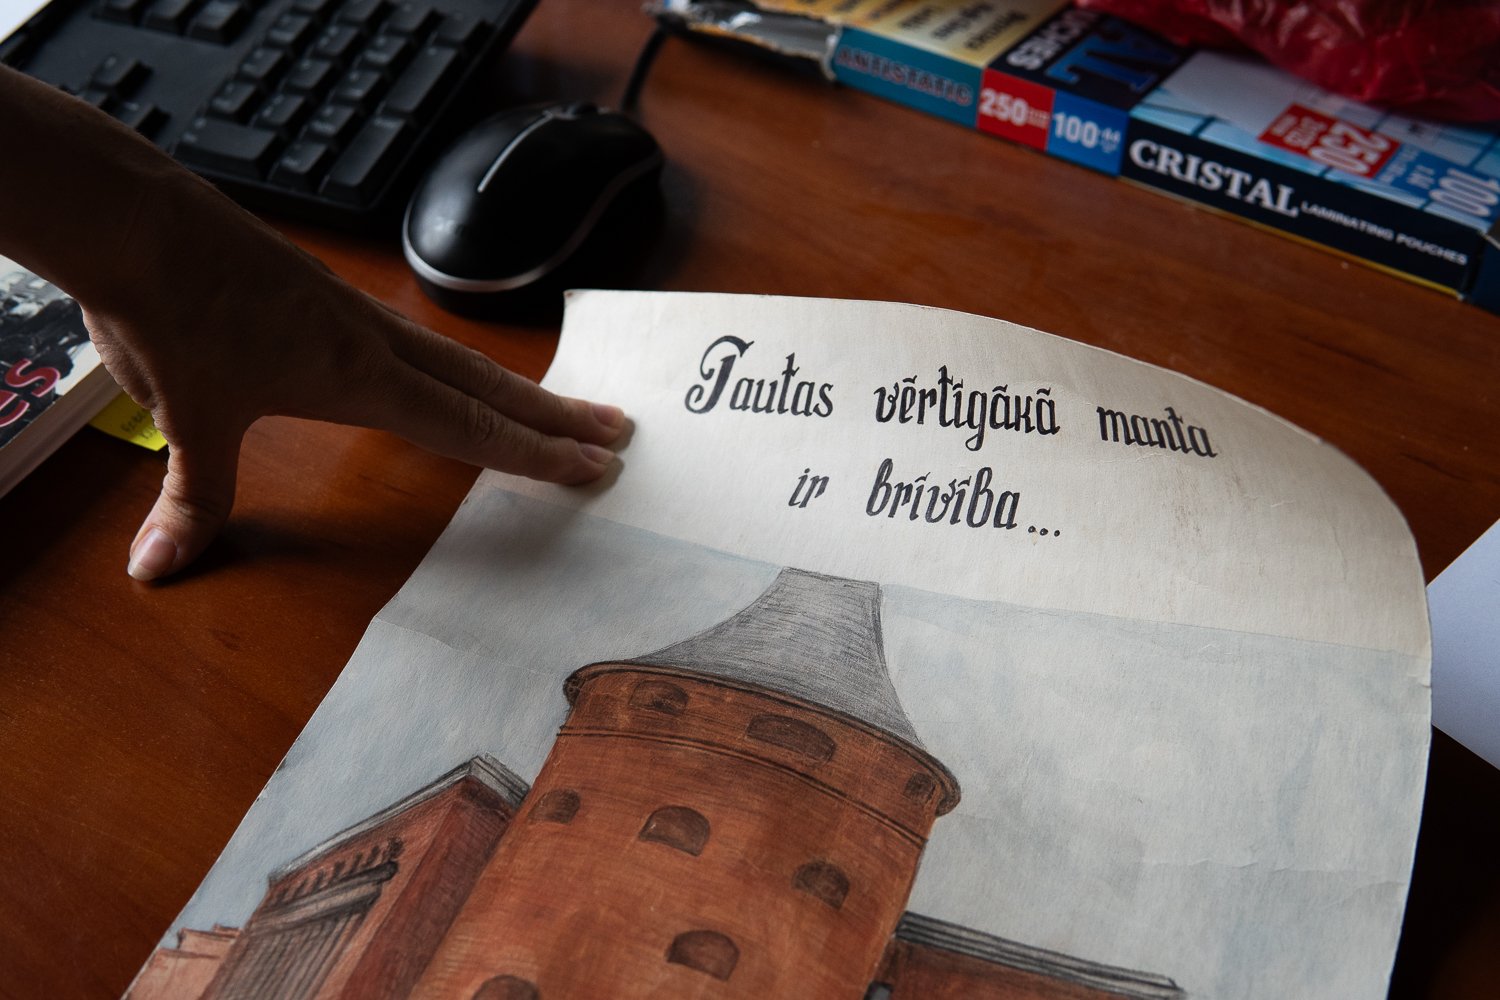 ANTISTATIC
250
100
CRISTAL LAMINATING POUCHES
250
100
Tautas vērtīgākā manta
ir brīvība...